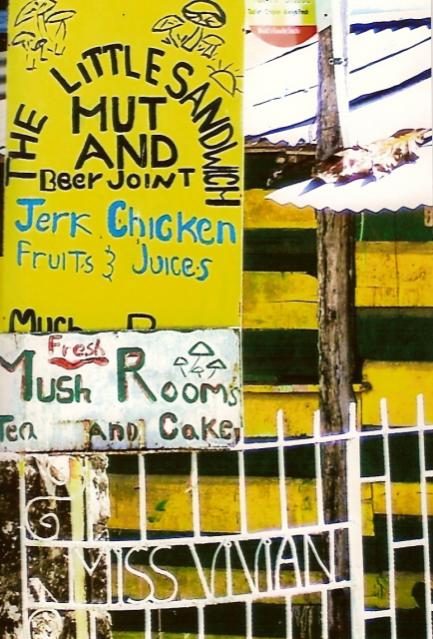 THE LITTLE SANDWICH
MUT
AND
Beer JOINT
Jerk Chicken
Fruits & Juices
Much
Fresh
Mush Rooms
Tea AND Cakes
MISS VIVIAN